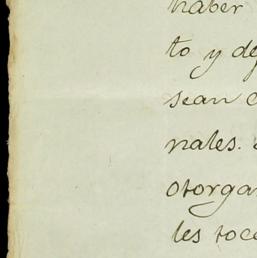 haber
to y de
sean
nales.
otorga
les toc